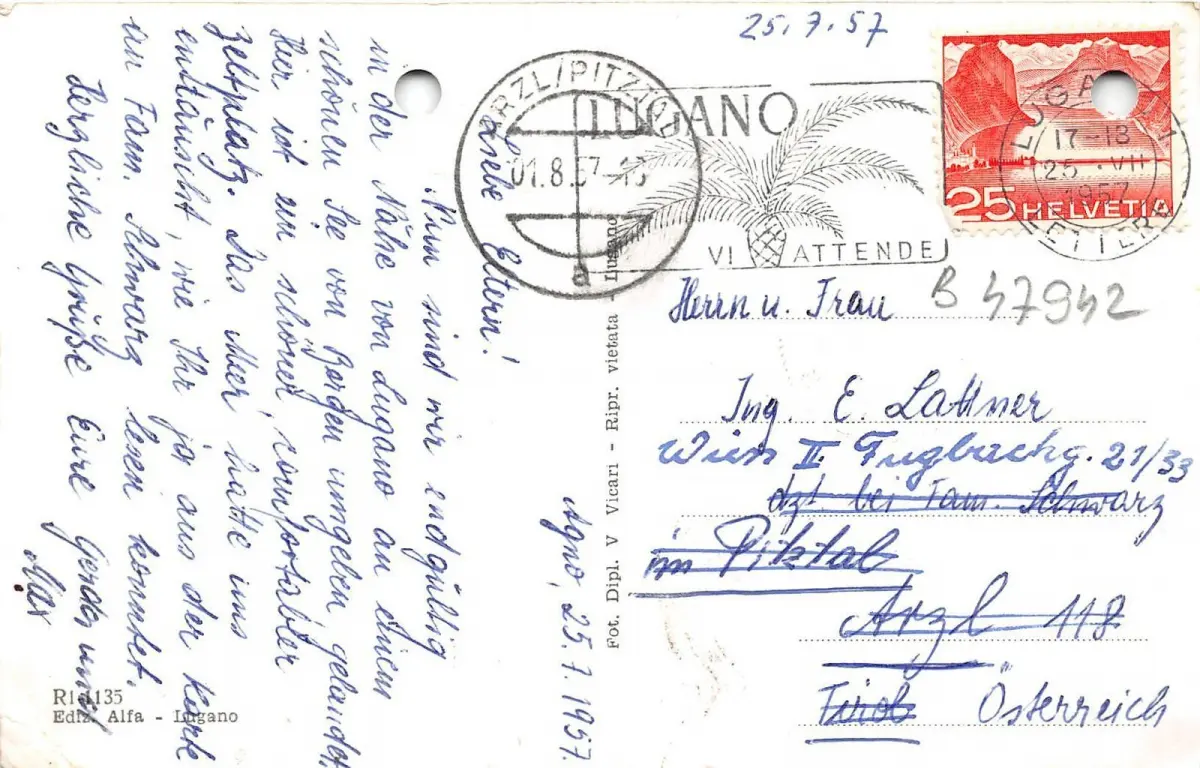 25.7.57
Agno, 25.7.1957.
Liebe Eltern!
Nun sind wir endgültig
in der Nähe von Lugano an einem
schönen See von Bergen umgeben gelandet.
Hier ist ein schöner, comfortabler
Zeltplatz. Das Meer hatte uns
entäuscht, wie Ihr ja aus der Karte
an Fam. Schwarz lesen konntet.
Herzliche Grüße Eure Gerda und
Max
R1 1135
Ediz. Alfa - Lugano
Fot. Dipl. V Vicari - Ripr. vietata - Lugano
ARZL/PITZTAL
01.8.57-13
a
LUGANO
VI ATTENDE
25 HELVETIA
LUGANO
17-18
25.VII
1957
LETTERE
B 47942
Herrn u. Frau
Ing. E. Lattner
Wien II. Fugbachg. 21/33
dzt. bei Fam. Schwarz
im Piktal
Arzl 118
Tirol Österreich